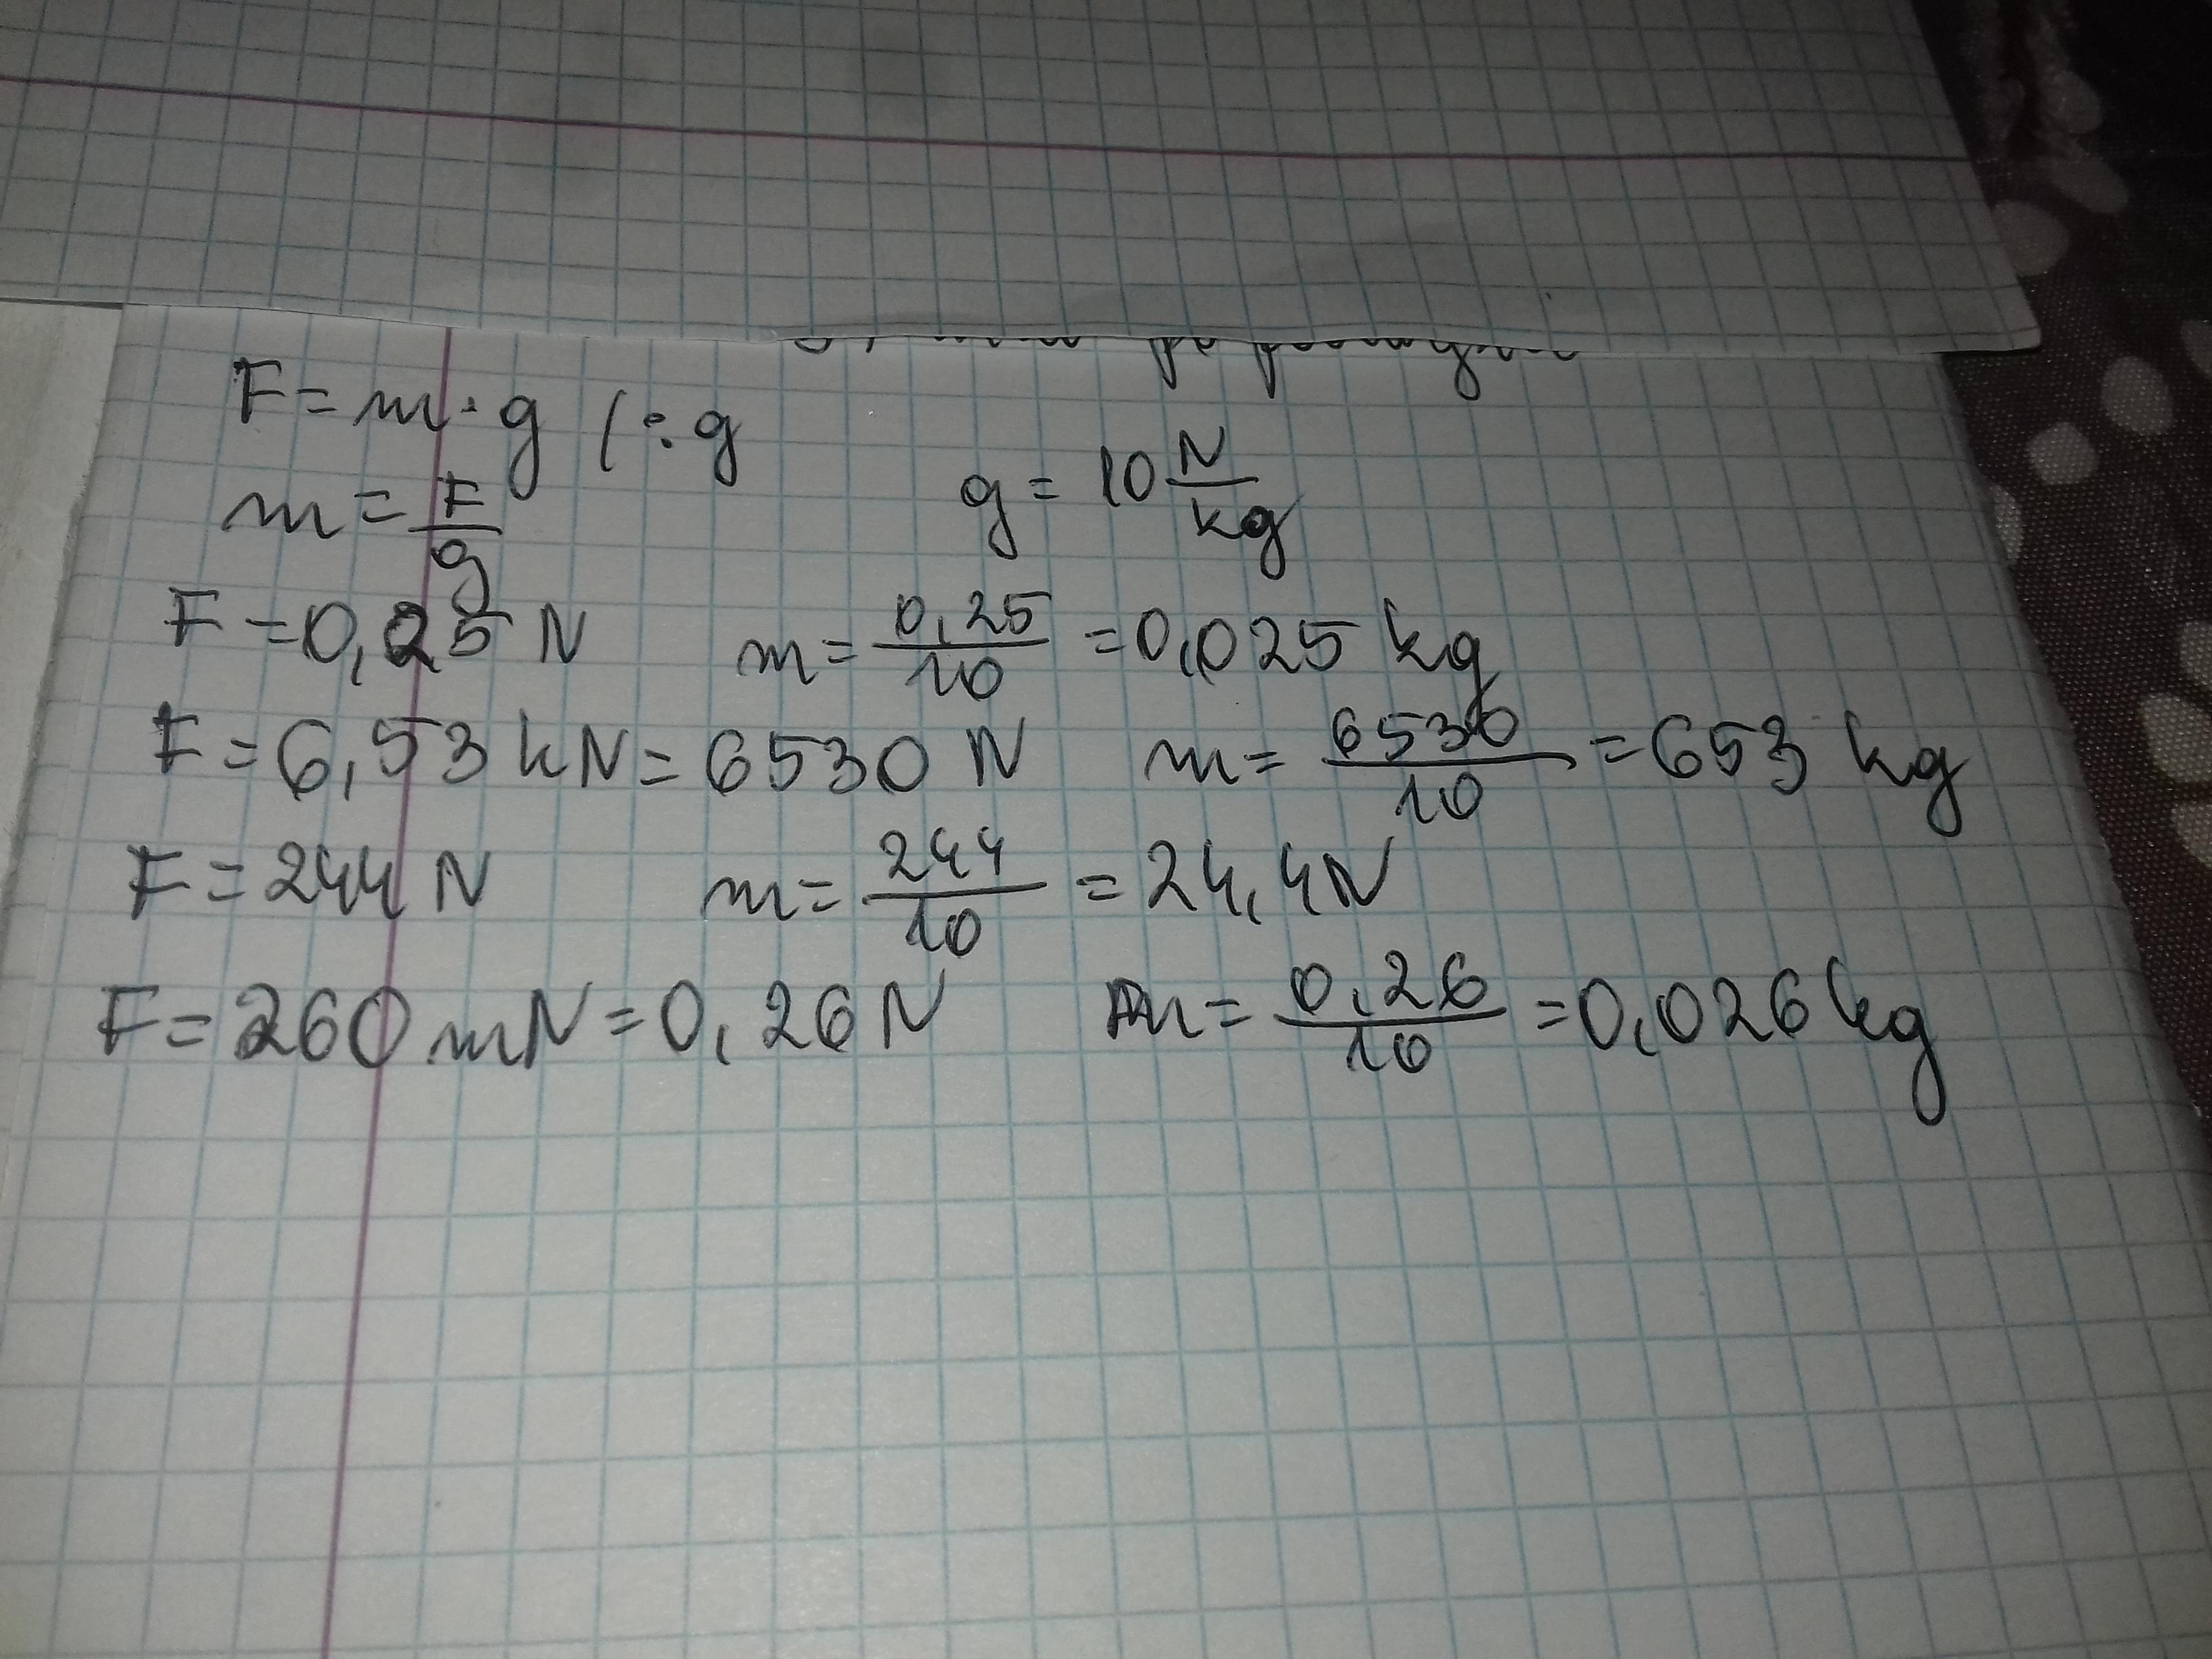 F = m · g / : g
m = F/g g = 10 N/kg
F = 0,25 N m = 0,25/10 = 0,025 kg
F = 6,53 kN = 6530 N m = 6530/10 = 653 kg
F = 244 N m = 244/10 = 24,4 N
F = 260 mN = 0,26 N m = 0,26/10 = 0,026 kg